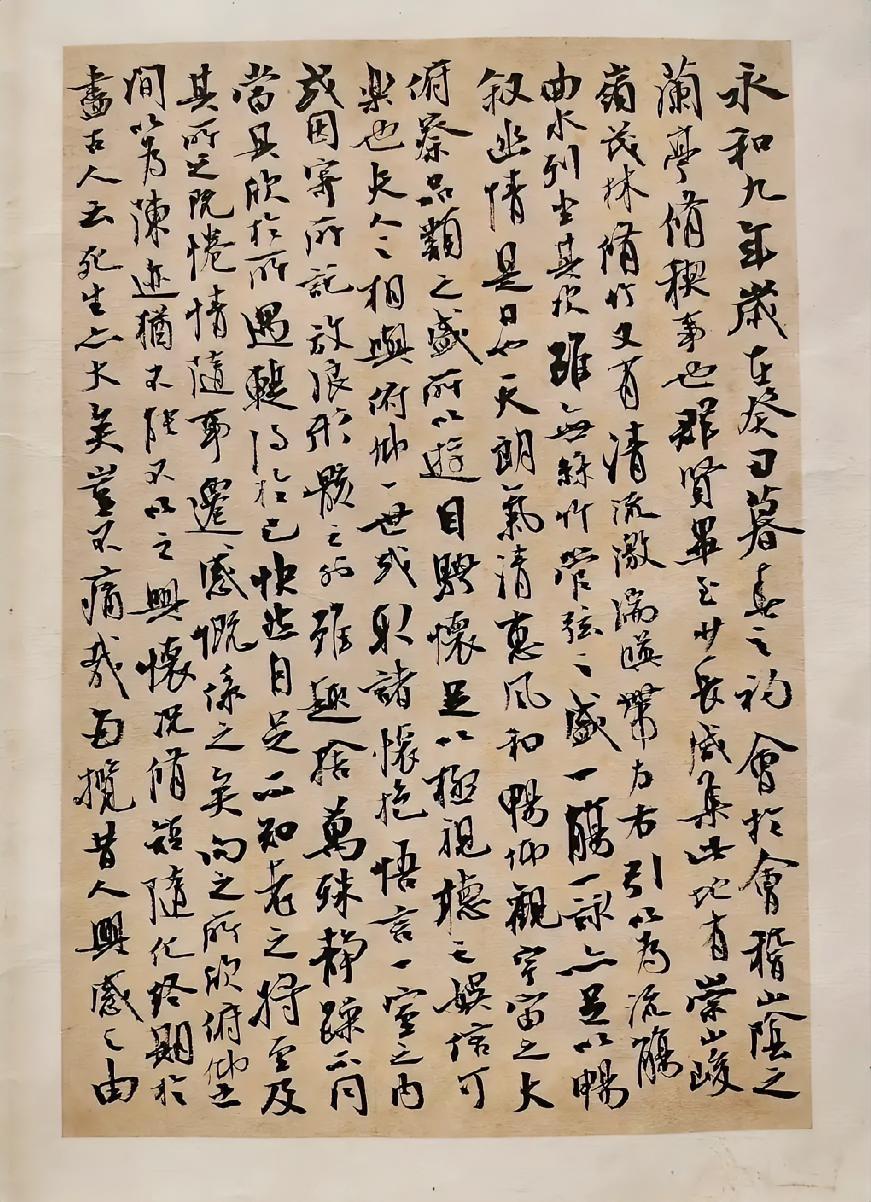 永和九年歲在癸丑暮春之初會於會稽山陰之
蘭亭脩稧事也群賢畢至少長咸集此地有崇山峻
嶺茂林脩竹又有清流激湍暎帶左右引以為流觴
曲水列坐其次雖無絲竹管弦之盛一觴一詠亦足以暢
叙幽情是日也天朗氣清惠風和暢仰觀宇宙之大
俯察品類之盛所以遊目騁懷足以極視聽之娛信可
樂也夫人之相與俯仰一世或取諸懷抱悟言一室之內
或因寄所託放浪形骸之外雖趣舍萬殊靜躁不同
當其欣於所遇蹔得於己快然自足不知老之將至及
其所之既惓情隨事遷感慨係之矣向之所欣俯仰之
間以為陳迹猶不能不以之興懷況脩短隨化終期於
盡古人云死生亦大矣豈不痛哉每攬昔人興感之由